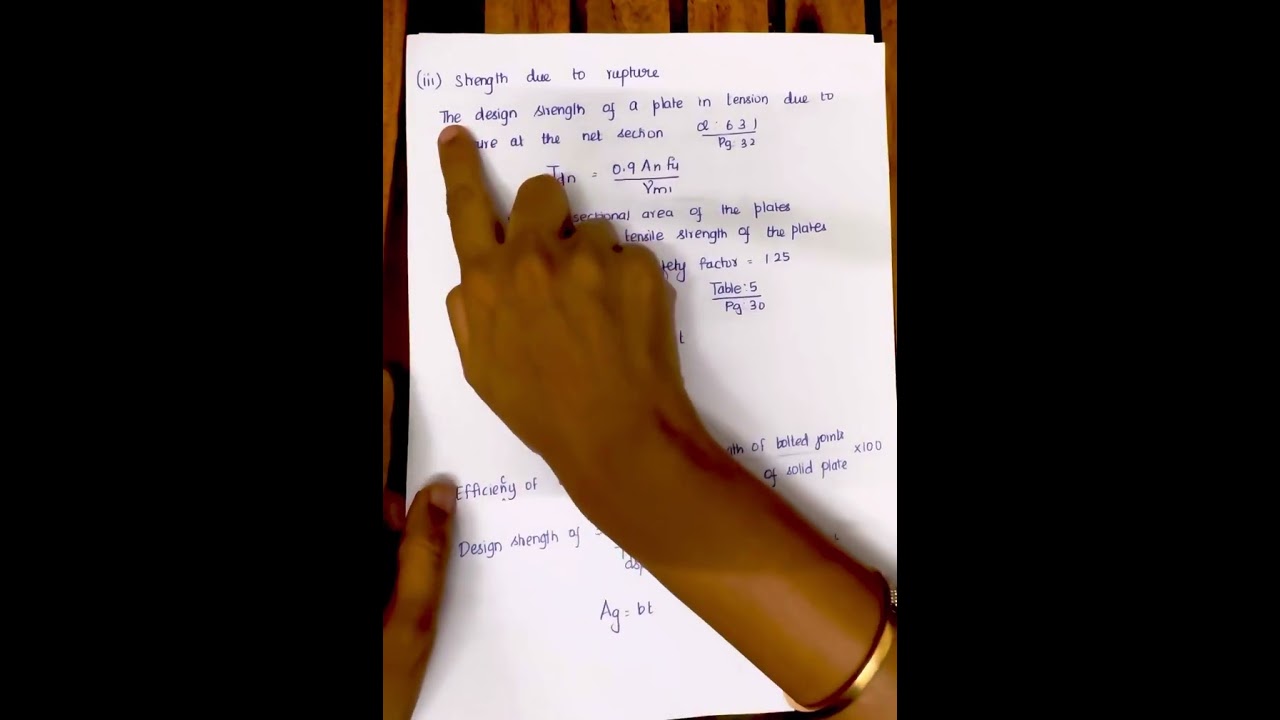 (iii) Strength due to rupture
The design strength of a plate in tension due to
ure at the net section cl: 6 3 1
Pg: 32
Tdn = 0.9 An fu
γm1
sectional area of the plates
tensile strength of the plates
fety factor = 1 25
Table: 5
Pg: 30
t
th of bolted joints
×100
Efficieny of
c
of solid plate
Design strength of =
Tdsp
Ag = bt